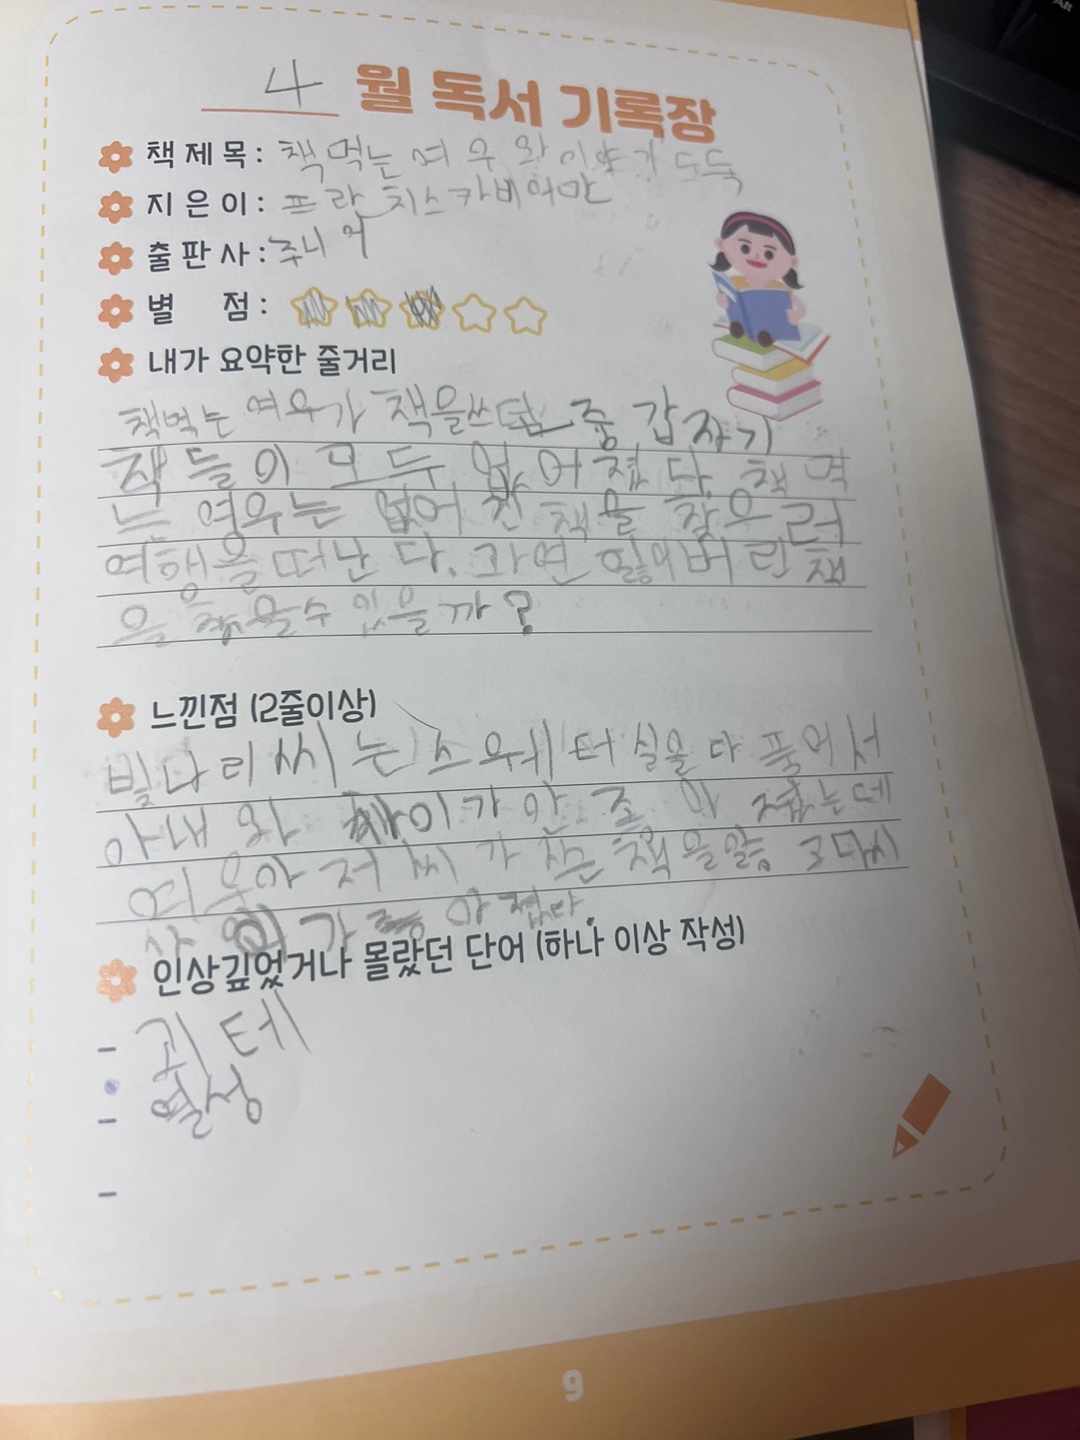 4 월 독서 기록장
책 제 목 : 책 먹는 여우 와 이야기 도둑
지 은 이 : 프란 치스카비어만
출 판 사 : 주니어
별 점 :
내가 요약한 줄거리
책먹는 여우가 책을쓰던 중 갑자기
책들이 모두 없어졌다. 책 먹
는 여우는 없어진 책을 찾으러
여행을 떠난다. 과연 잃어버린 책
을 찾을수 있을까?
느낀점 (2줄이상)
빌다리씨는 스웨터 실을 다 풀어서
아내와 사이가 안 좋아졌는데
여우아저씨가 준 책을 읽고 다시
사이가 좋아졌다.
인상깊었거나 몰랐던 단어 (하나 이상 작성)
- 괴테
- 열성
-
9